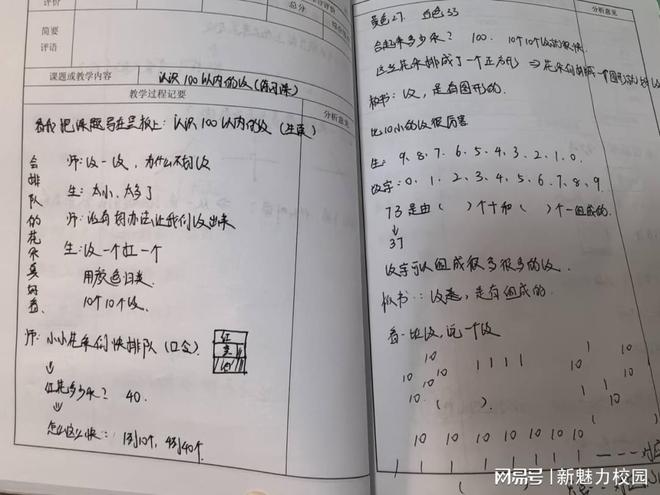 评价
总分
简要
评语
课题或教学内容 认识100以内的数(练习课)
教学过程记要
分析意见
把课题写在黑板上:认识100以内的数(生读)
会排队的花朵真好看
师:数一数,为什么不同数
生:太小,太多了
师:没有想办法让我们数出来
生:数一个扛一个
用颜色归类
10个10个数.
师:小小花朵们快排队(口令)
红
黄
红花多少朵? 40.
怎么这么快: 1列10个, 4列40个.
分析意见
黄色27. 白色33
合起来多少朵? 100. 10个10个数的很快.
这些花朵排成了一个正方形
板书:数,是有图形的.
比10小的数很厉害
生: 9、8、7、6、5、4、3、2、1、0.
数字:0、1、2、3、4、5、6、7、8、9.
73是由( )个十和( )个一组成的.
37
数字可以组成很多很多的数.
板书:数,是有组成的.
看一堆数,说一个数
10 1 1 1 1 1 10
10 10 10 1
10 10 10
( )
10 10 10 10 10 10 10
网易号 | 新魅力校园